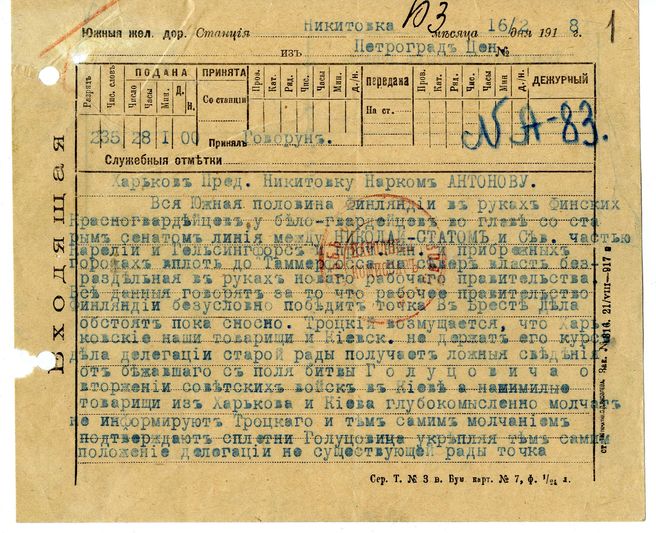 ВЗ
1
Южныя жел. дор. Станція Никитовка мѣсяца 16/2 дня 191 8 г.
изъ Петроградъ Цен. №
Разрядъ Чис. словъ ПОДАНА Число Часы Мин. Д. Н. ПРИНЯТА Со станціи Пров. Кат. Ряд. Чис. Часы Мин. Д./Н. передана На ст. Пров. Кат. Ряд. Чис. Часы Мин Д./Н. ДЕЖУРНЫЙ
235 28 I 00 Принялъ Говорунъ.
N A-83.
Служебныя отмѣтки
Входящая
Харьковъ Пред. Никитовку Нарком АНТОНОВУ.
Вся Южная половина Финляндіи въ рукахъ Финских
Красногвардѣйцев у бѣло-гвардейцев во главѣ со ста
рымъ сенатом линія между НИКОЛАЙ-СТАТОМЪ и Сѣв. частью
Карелии и Гельсингфорсъ приюбряжных
городахъ вплоть до Таммерфорса на сѣвер власть без-
раздѣльная въ рукахъ новаго рабочаго правительства.
Всѣ данныя говорят за то что рабочее правительство
Финляндіи безусловно побѣдит точка Въ Брестѣ Дѣла
обстоят пока сносно. Троцкій возмущается, что Харь-
ковскіе наши товарищи и Кіевск. не держать его курсѣ
дѣла делегаціи старой рады получаетъ ложныя свѣдѣнія
отъ бѣжавшаго съ поля битвы Голуцовича о
вторженіи совѣтских войскъ въ Кіевѣ а нашимилые
товарищи изъ Харькова и Кіева глубокомысленно молчатъ
не информируютъ Троцкаго и тѣмъ самим молчаніемъ
подтверждаютъ сплетни Голуцовица укрѣпляя тѣмъ самим
положеніе делегаціи не существующей рады точка
Сер. Т. № 3 в. Бум карт. № 7, ф. 1/24 л.
21/VIII—917 г.